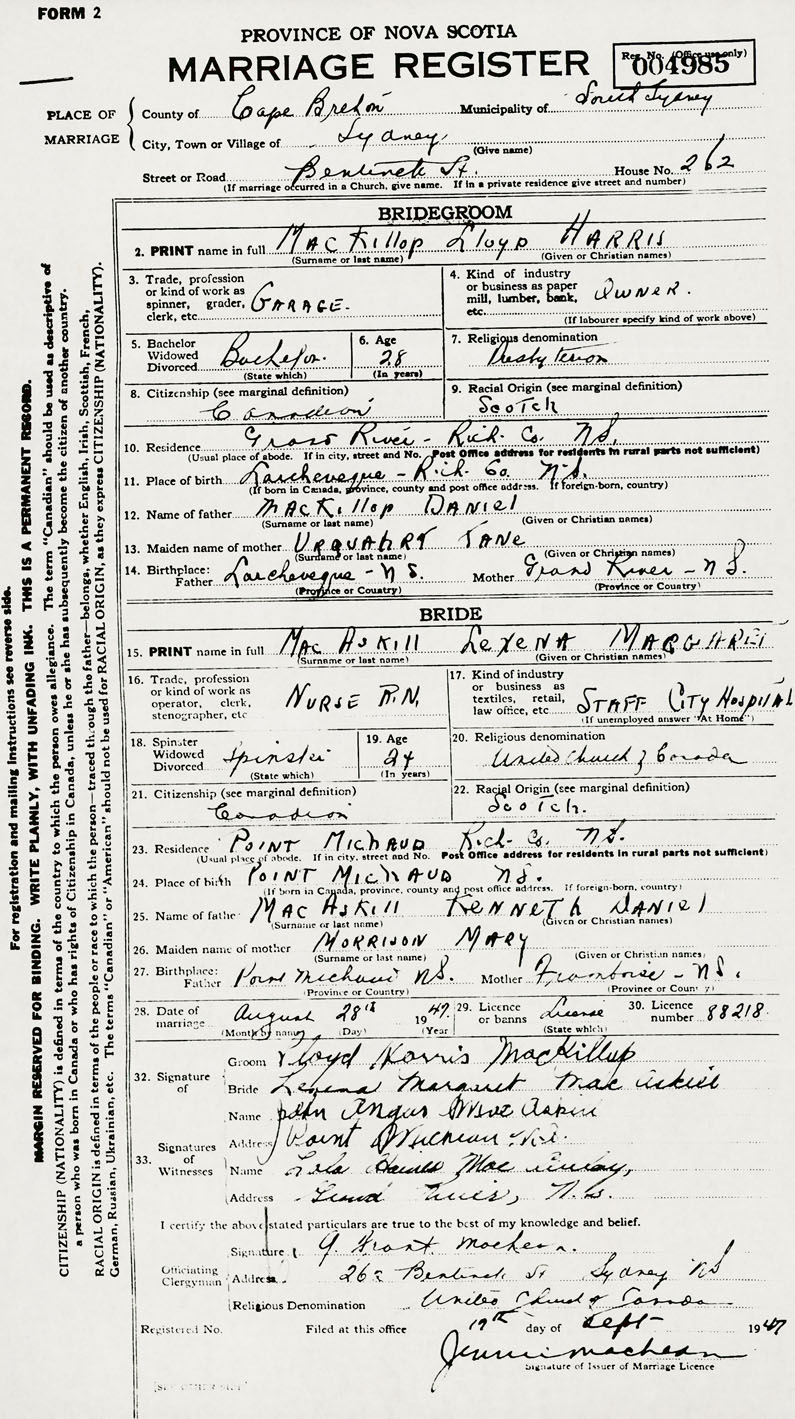 FORM 2
PROVINCE OF NOVA SCOTIA
MARRIAGE REGISTER
Reg. No. (Office use only)
004985
PLACE OF MARRIAGE
County of Cape Breton Municipality of South Sydney
City, Town or Village of Sydney
(Give name)
Street or Road Bentinck St. House No. 262
(If marriage occurred in a Church, give name. If in a private residence give street and number)
BRIDEGROOM
2. PRINT name in full MacKillop Lloyd HARRIS
(Surname or last name) (Given or Christian names)
3. Trade, profession or kind of work as spinner, grader, clerk, etc. GARAGE.
4. Kind of industry or business as paper mill, lumber, bank, etc. OWNER.
(If labourer specify kind of work above)
5. Bachelor Widowed Divorced Bachelor
(State which)
6. Age 28
(In years)
7. Religious denomination Presbyterian
8. Citizenship (see marginal definition) Canadian
9. Racial Origin (see marginal definition) Scotch
10. Residence Grand River - Rich. Co. N.S.
(Usual place of abode. If in city, street and No. Post Office address for residents in rural parts not sufficient)
11. Place of birth Larcheveque - Rich. Co. N.S.
(If born in Canada, province, county and post office address. If foreign-born, country)
12. Name of father MacKillop DANIEL
(Surname or last name) (Given or Christian names)
13. Maiden name of mother URQUAHRT JANE
(Surname or last name) (Given or Christian names)
14. Birthplace: Father Larcheveque - N S. Mother Grand River - N S.
(Province or Country) (Province or Country)
BRIDE
15. PRINT name in full MacAskill LEXENA MARGHRET
(Surname or last name) (Given or Christian names)
16. Trade, profession or kind of work as operator, clerk, stenographer, etc NURSE R.N.
17. Kind of industry or business as textiles, retail, law office, etc STAFF CITY HOSPITAL
(If unemployed answer "At Home")
18. Spinster Widowed Divorced Spinster
(State which)
19. Age 24
(In years)
20. Religious denomination United Church of Canada
21. Citizenship (see marginal definition) Canadian
22. Racial Origin (see marginal definition) Scotch.
23. Residence POINT MICHAUD Rich- Co. N.S.
(Usual place of abode. If in city, street and No. Post Office address for residents in rural parts not sufficient)
24. Place of birth POINT MICHAUD N.S.
(If born in Canada, province, county and post office address. If foreign-born, country)
25. Name of father MacAskill KENNETH DANIEL
(Surname or last name) (Given or Christian names)
26. Maiden name of mother MORRISON MARY
(Surname or last name) (Given or Christian names)
27. Birthplace: Father Point Michaud N.S. Mother Framboise - N.S.
(Province or Country) (Province or Country)
28. Date of marriage August 28th 1947
(Month by name) (Day) (Year
29. Licence or banns License
(State which)
30. Licence number 88218
32. Signature of
Groom Lloyd Harris MacKillop
Bride Lexena Margaret MacAskill
33. Signatures of Witnesses
Name John Angus MacAskill
Address Point Michaud N.S.
Name Lola Haines Mac
Address Grand River, N.S.
I certify the above stated particulars are true to the best of my knowledge and belief.
Officiating Clergyman
Signature G. Grant
Address 262 Bentinck St Sydney NS
Religious Denomination United Church of Canada
Registered No. Filed at this office 19th day of Sept 1947
Jennie MacLean
Signature of Issuer of Marriage Licence
For registration and mailing instructions see reverse side.
MARGIN RESERVED FOR BINDING. WRITE PLAINLY, WITH UNFADING INK. THIS IS A PERMANENT RECORD.
CITIZENSHIP (NATIONALITY) is defined in terms of the country to which the person owes allegiance. The term "Canadian" should be used as descriptive of
a person who was born in Canada or who has rights of Citizenship in Canada, unless he or she has subsequently become the citizen of another country.
RACIAL ORIGIN is defined in terms of the people or race to which the person—traced through the father—belongs, whether English, Irish, Scottish, French,
German, Russian, Ukrainian, etc. The terms "Canadian" or "American" should not be used for RACIAL ORIGIN, as they express CITIZENSHIP (NATIONALITY).